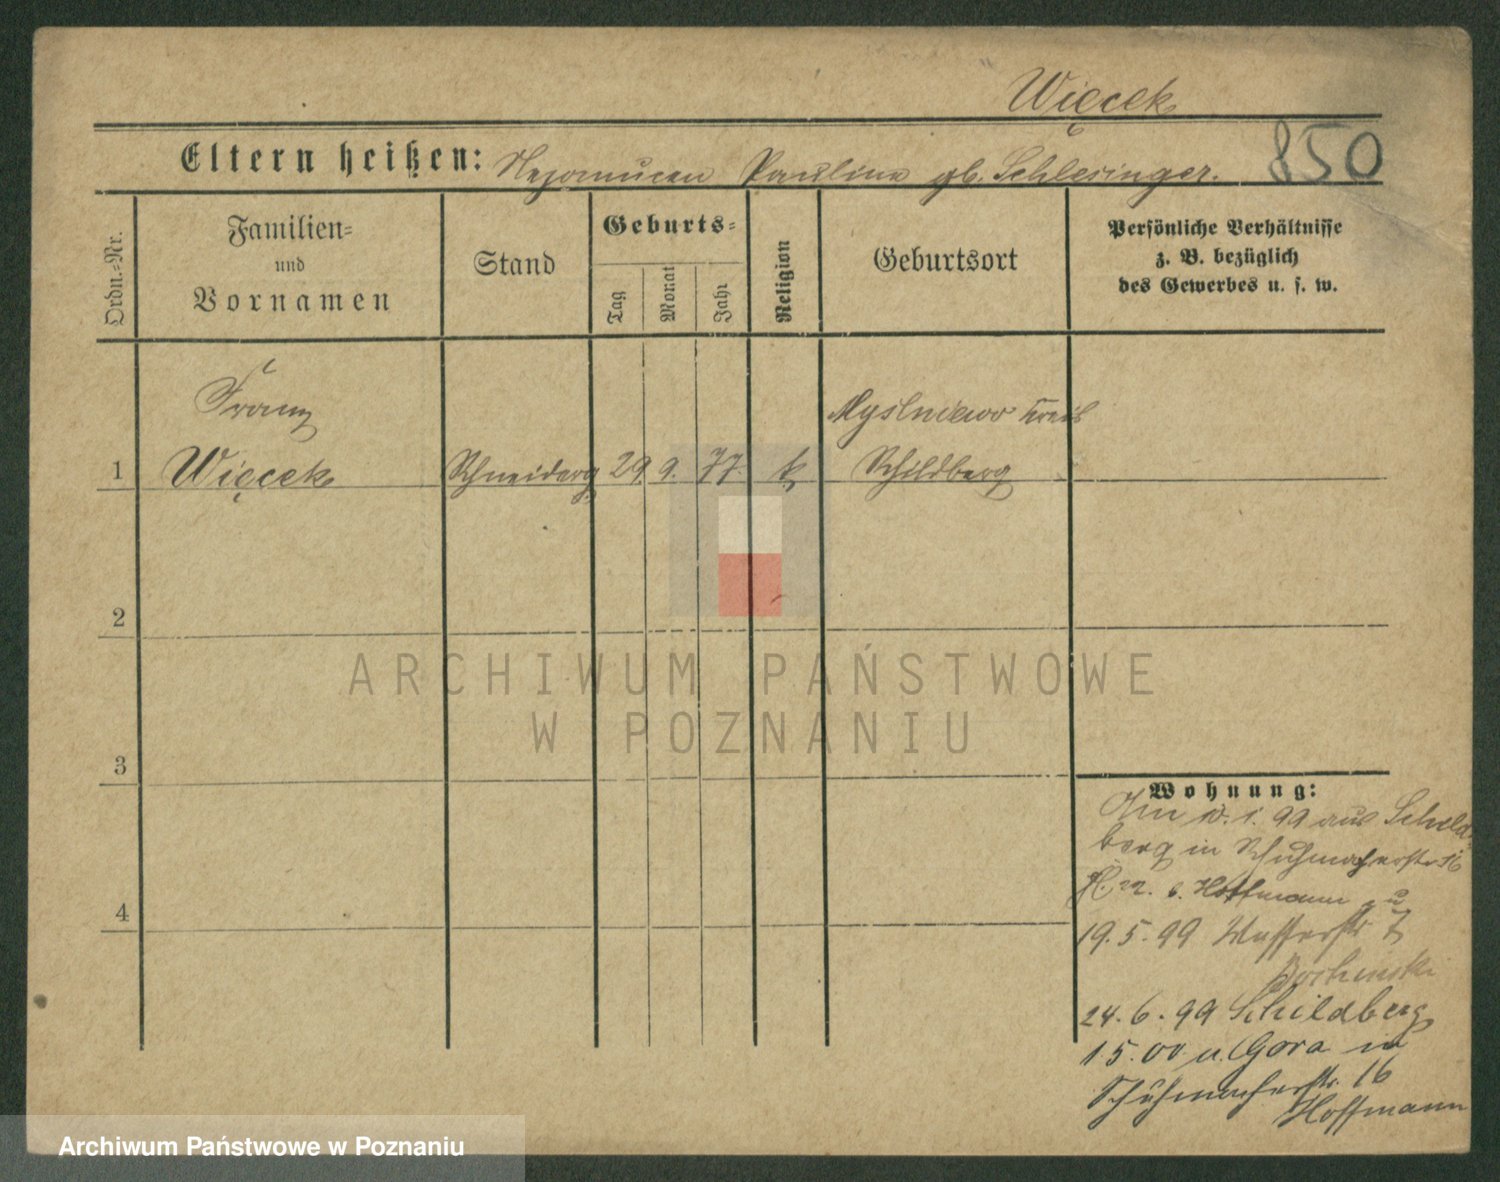 Więcek
850
Eltern heißen: Nepomucen Paulina gb. Schlesinger.
Ordn.=Nr.
Familien=
und
Vornamen
Stand
Geburts=
Tag
Monat
Jahr
Religion
Geburtsort
Persönliche Verhältnisse
z. B. bezüglich
des Gewerbes u. s. w.
Franz
Myślniewo Kreis
1 Więcek Schneiderg. 29. 9. 77. k. Schildberg
2
ARCHIWUM PAŃSTWOWE
W POZNANIU
3
Wohnung:
1. 99 aus Schild
berg in Schuhmacherstr. 16
Hoffmann
4
19. 5. 99 Wasserstr. 7
24. 6. 99 Schildberg
15. 00 u. Gora in
Schuhmacherstr. 16
Hoffmann
Archiwum Państwowe w Poznaniu